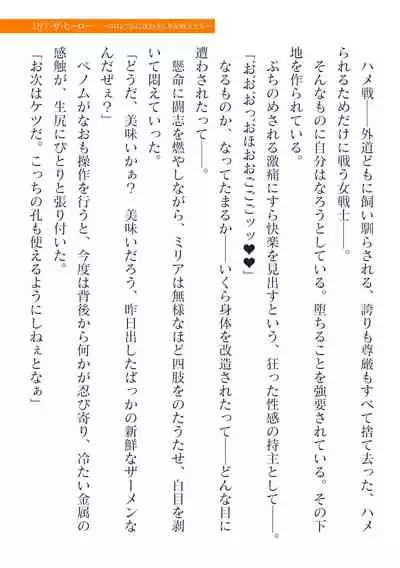 ミリア・ザ・ヒーロー
ハメ戦――外道どもに飼い馴らされる、誇りも尊厳もすべて捨て去った、ハメ
られるためだけに戦う女戦士――。
そんなものに自分はなろうとしている。堕ちることを強要されている。その下
地を作られている。
ぶちのめされる激痛にすら快楽を見出すという、狂った性感の持主として――。
「おおおっっおほおおごごごッッ♥♥」
なるものか、なってたまるか――いくら身体を改造されたって――どんな目に
遭わされたって――。
懸命に闘志を燃やしながら、ミリアは無様なほど四肢をのたうたせ、白目を剥
いて悶えていった。
「どうだ、美味いかぁ？　美味いだろう、昨日出したばっかの新鮮なザーメンな
んだぜぇ？」
ペノムがなおも操作を行うと、今度は背後から何かが忍び寄り、冷たい金属の
感触が、生尻にぴとりと張り付いた。
「お次はケツだ。こっちの孔も使えるようにしねぇとなぁ」